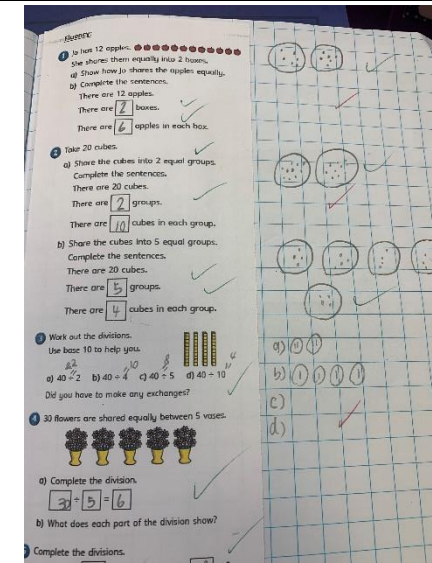 Fluency
1 Jo has 12 apples.
She shares them equally into 2 boxes.
a) Show how Jo shares the apples equally.
b) Complete the sentences.
There are 12 apples.
There are 2 boxes.
There are 6 apples in each box.
2 Take 20 cubes.
a) Share the cubes into 2 equal groups.
Complete the sentences.
There are 20 cubes.
There are 2 groups.
There are 10 cubes in each group.
b) Share the cubes into 5 equal groups.
Complete the sentences.
There are 20 cubes.
There are 5 groups.
There are 4 cubes in each group.
3 Work out the divisions.
Use base 10 to help you.
10 8 4
a) 40 ÷ 2 b) 40 ÷ 4 c) 40 ÷ 5 d) 40 ÷ 10
Did you have to make any exchanges?
4 30 flowers are shared equally between 5 vases.
a) Complete the division.
30 ÷ 5 = 6
b) What does each part of the division show?
Complete the divisions.
a)
b)
c)
d)